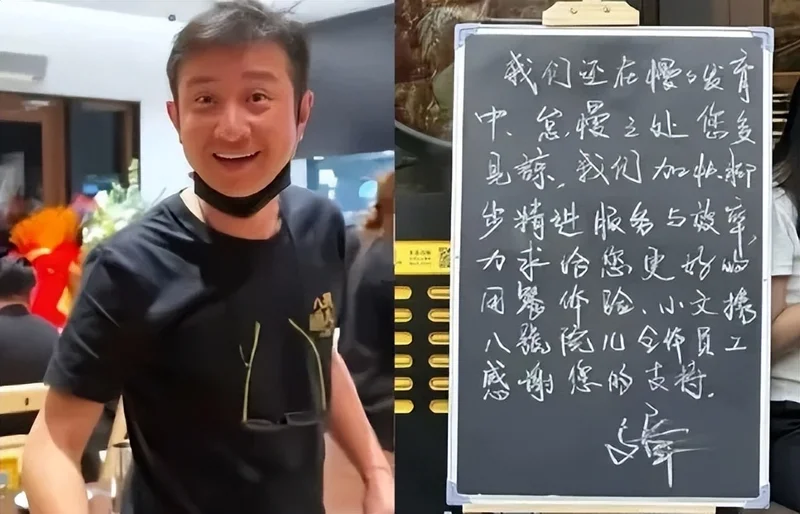 我们还在慢々发育
中、怠慢之处您多
见諒,我们加快脚
步精进服务与效率,
力求给您更好的
用餐体验、小文携
八號院儿全体员工
感谢您的支持.